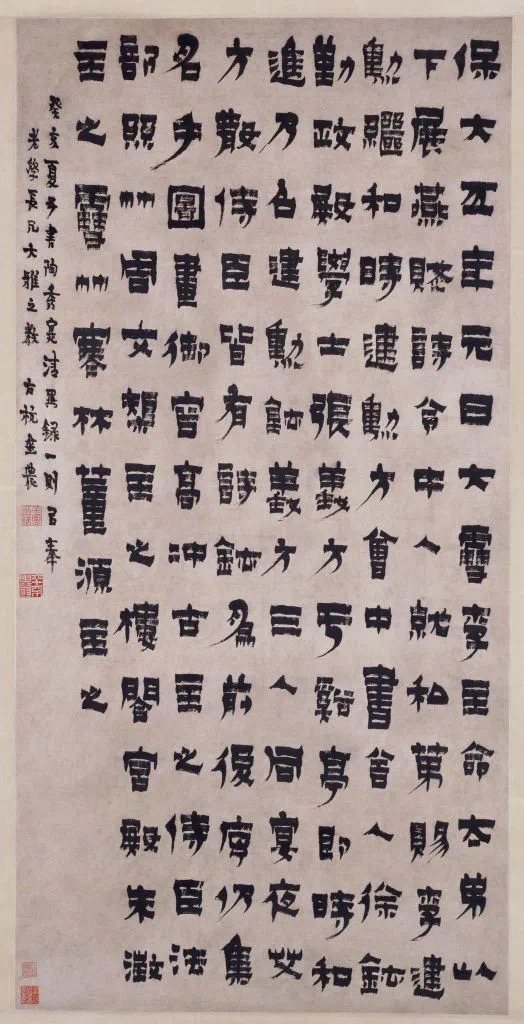 保大五年元日大雪李主命太弟以
下展燕賦詩令中人就和第賜李建
勳繼和時建勳方會中書舍人徐鉉
勤政殿學士張義方于溪亭即時和
進乃召建勳鉉義方三人同宴夜艾
方散侍臣皆有詩鉉爲前後序仍集
名手圖畫御容高沖古主之侍臣法
部絲竹周文矩主之樓閣宮殿朱澂
主之雪竹寒林董源主之
癸亥夏書陶秀實清異錄一則㠯奉
老學長兄大雅之教 古杭金農